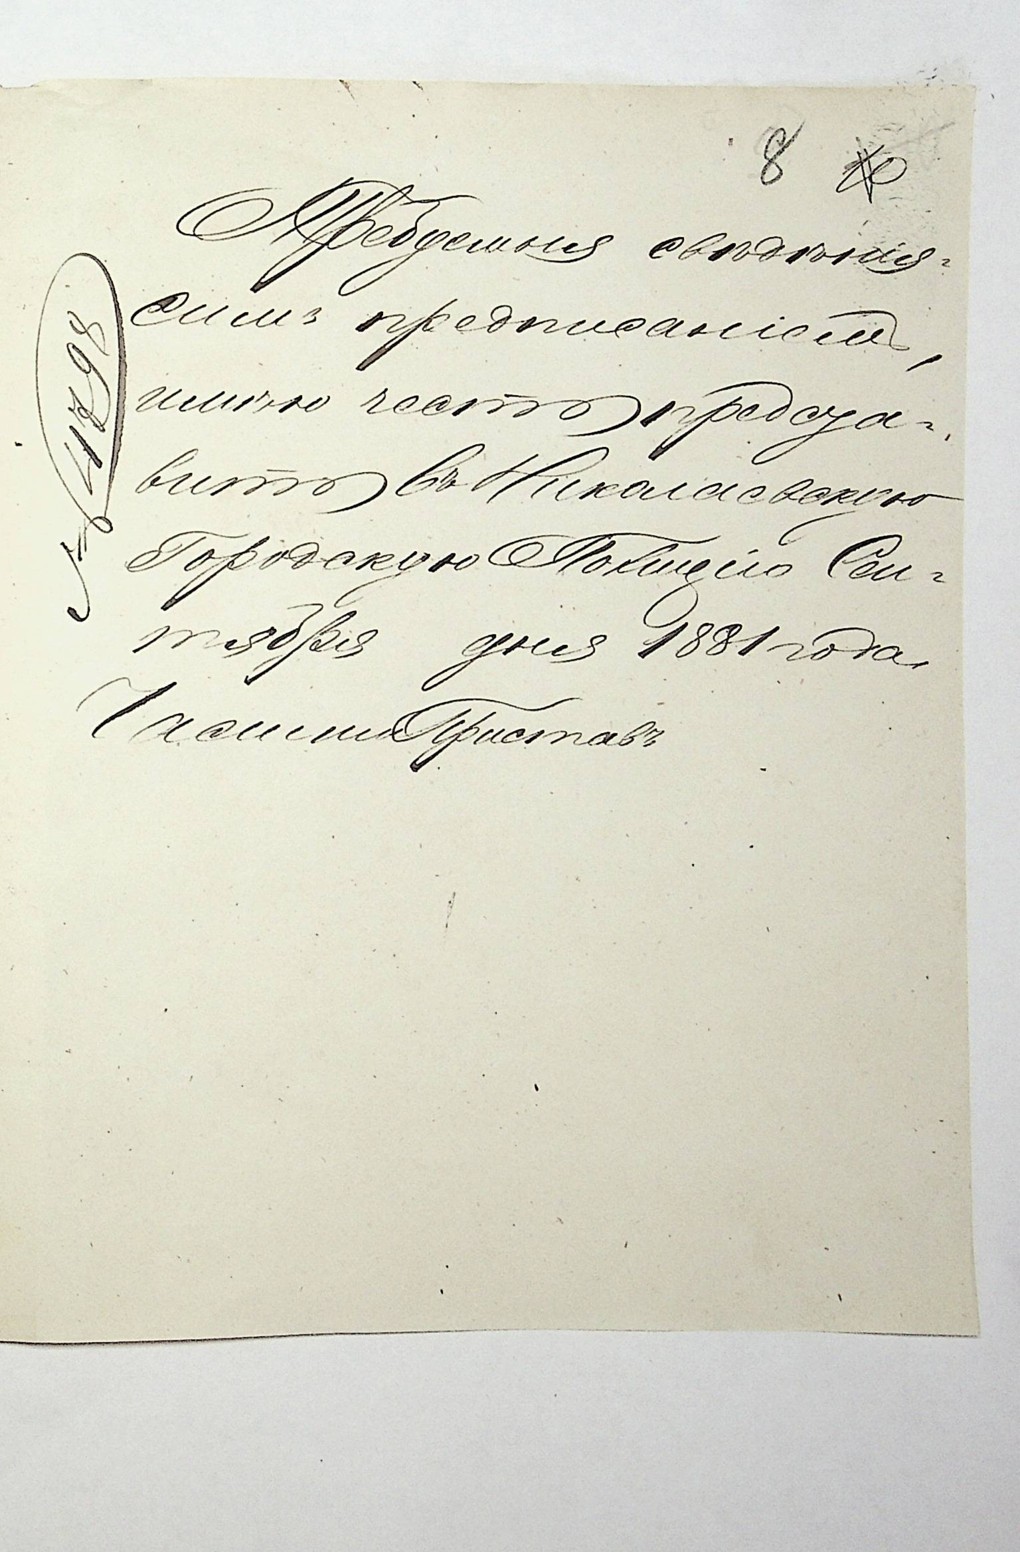 8
Требуемыя свѣдѣнія-
симъ предписаніемъ,
имѣю честь предста-
вить въ Николаевскую
Городскую Полицію Сен-
тября дня 1881 года.
Частный Приставъ
№ 4898